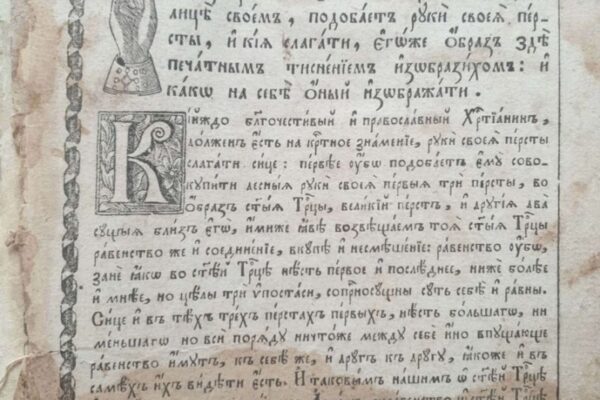 лицѣ своемъ, подобаетъ руки своея пер-
сты, и кія слагати, єгѡже ѡбразъ здѣ
печатнымъ тисненіемъ изѡбразихомъ: и
какѡ на себѣ ѻный изѡбражати.
Кійждо благочестивый и православный Хрⷭ҇тіанинъ,
долженъ єсть на крⷭ҇тное знаменіе, руки своея персты
слагати сице: первѣе ѹбѡ подобаетъ ємꙋ сово-
кꙋпити десныя руки своея первыя три персты, во
ѻбразъ ст҃ыѧ Трⷪ҇цы, великій перстъ, и другія два
сꙋщыя близъ єгѡ, имиже ꙗвѣ возвѣщаемъ тоя ст҃ыѧ Трⷪ҇цы
равенство же и соединеніе, вкꙋпѣ и несмѣшеніе: равенство ѹбѡ,
зане ꙗкѡ во ст҃ѣй Трⷪ҇цѣ нѣсть первое и послѣднее, ниже болѣе
и мнѣе, но цѣлы три ѵпостаси, соприсносꙋщны сꙋть себѣ и равны.
Сице и въ тѣхъ трехъ перстахъ первыхъ, нѣсть большагѡ, ни
меньшагѡ но вси поряду ничтоже между себѣ ино впꙋщающе
равенство имꙋтъ, къ себѣ же, и другъ къ другу, ꙗкоже и въ
самѣхъ ихъ видѣти єсть. И таковымъ нашимъ ѡ ст҃ѣй Трⷪ҇цѣ